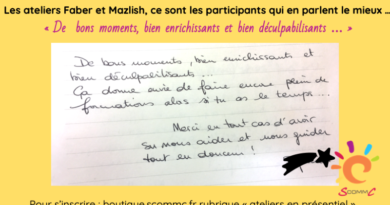 Les ateliers Faber et Mazlish, ce sont les participants qui en parlent le mieux ...
« De bons moments, bien enrichissants et bien déculpabilisants ... »
De bons moments, bien enrichissants et
bien déculpabilisants...
Ça donne envie de faire encore plein de
formations alors si tu as le temps...
Merci en tout cas d'avoir
su nous aider et nous guider
tout en douceur !
SCOMMC
Pour s'inscrire : boutique.scommc.fr rubrique « ateliers en présentiel »